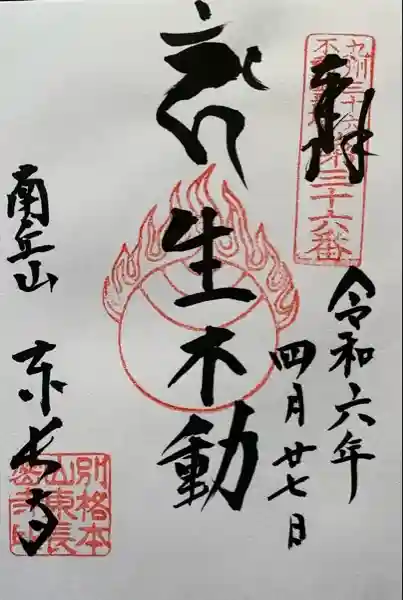 奉拝
九州三十六
不動霊場第三十六番
令和六年
四月廿七日
生不動
南岳山
東長寺
別格本
山東長
密寺印